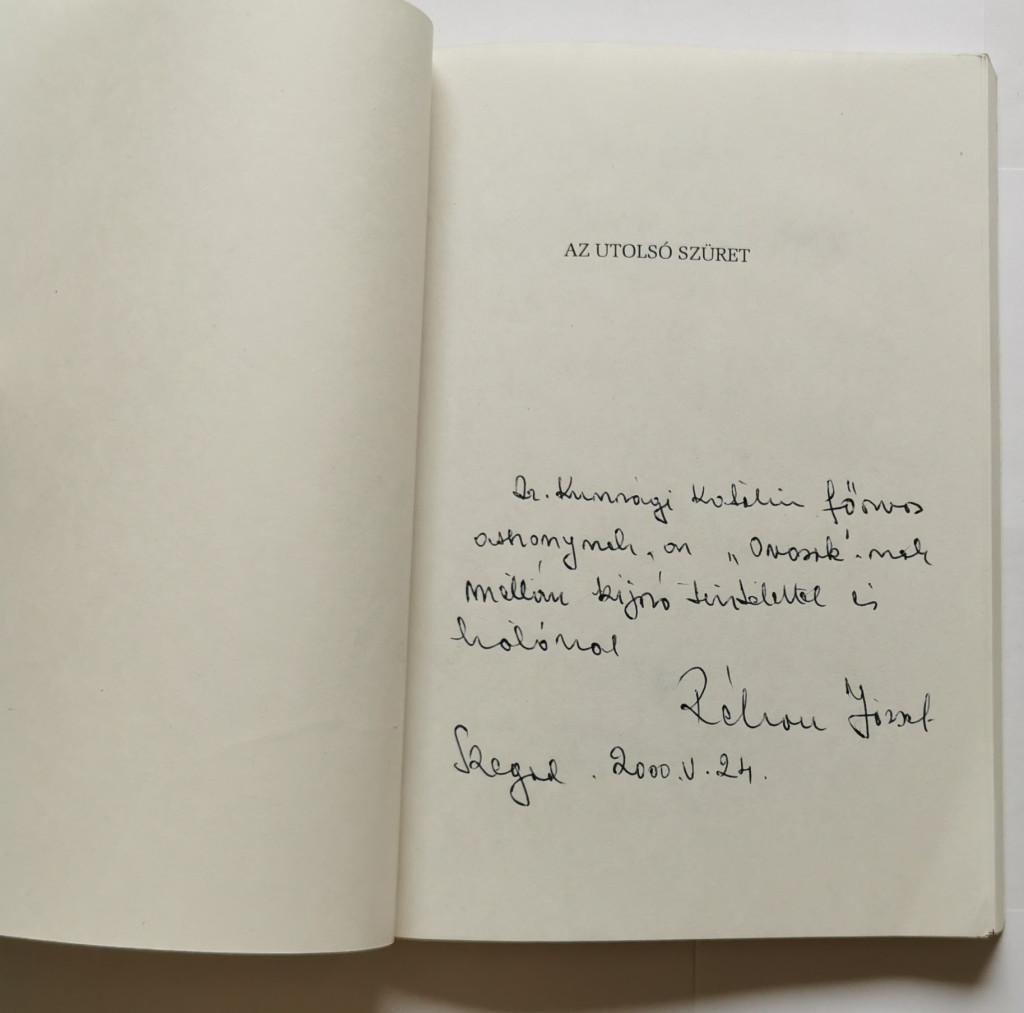 AZ UTOLSÓ SZÜRET
Dr. Kunsági Katalin főorvos
asszonynak, az „Orvosok”-nak
méltán kijáró tisztelettel és
hálával
József
Szeged. 2000.V.24.